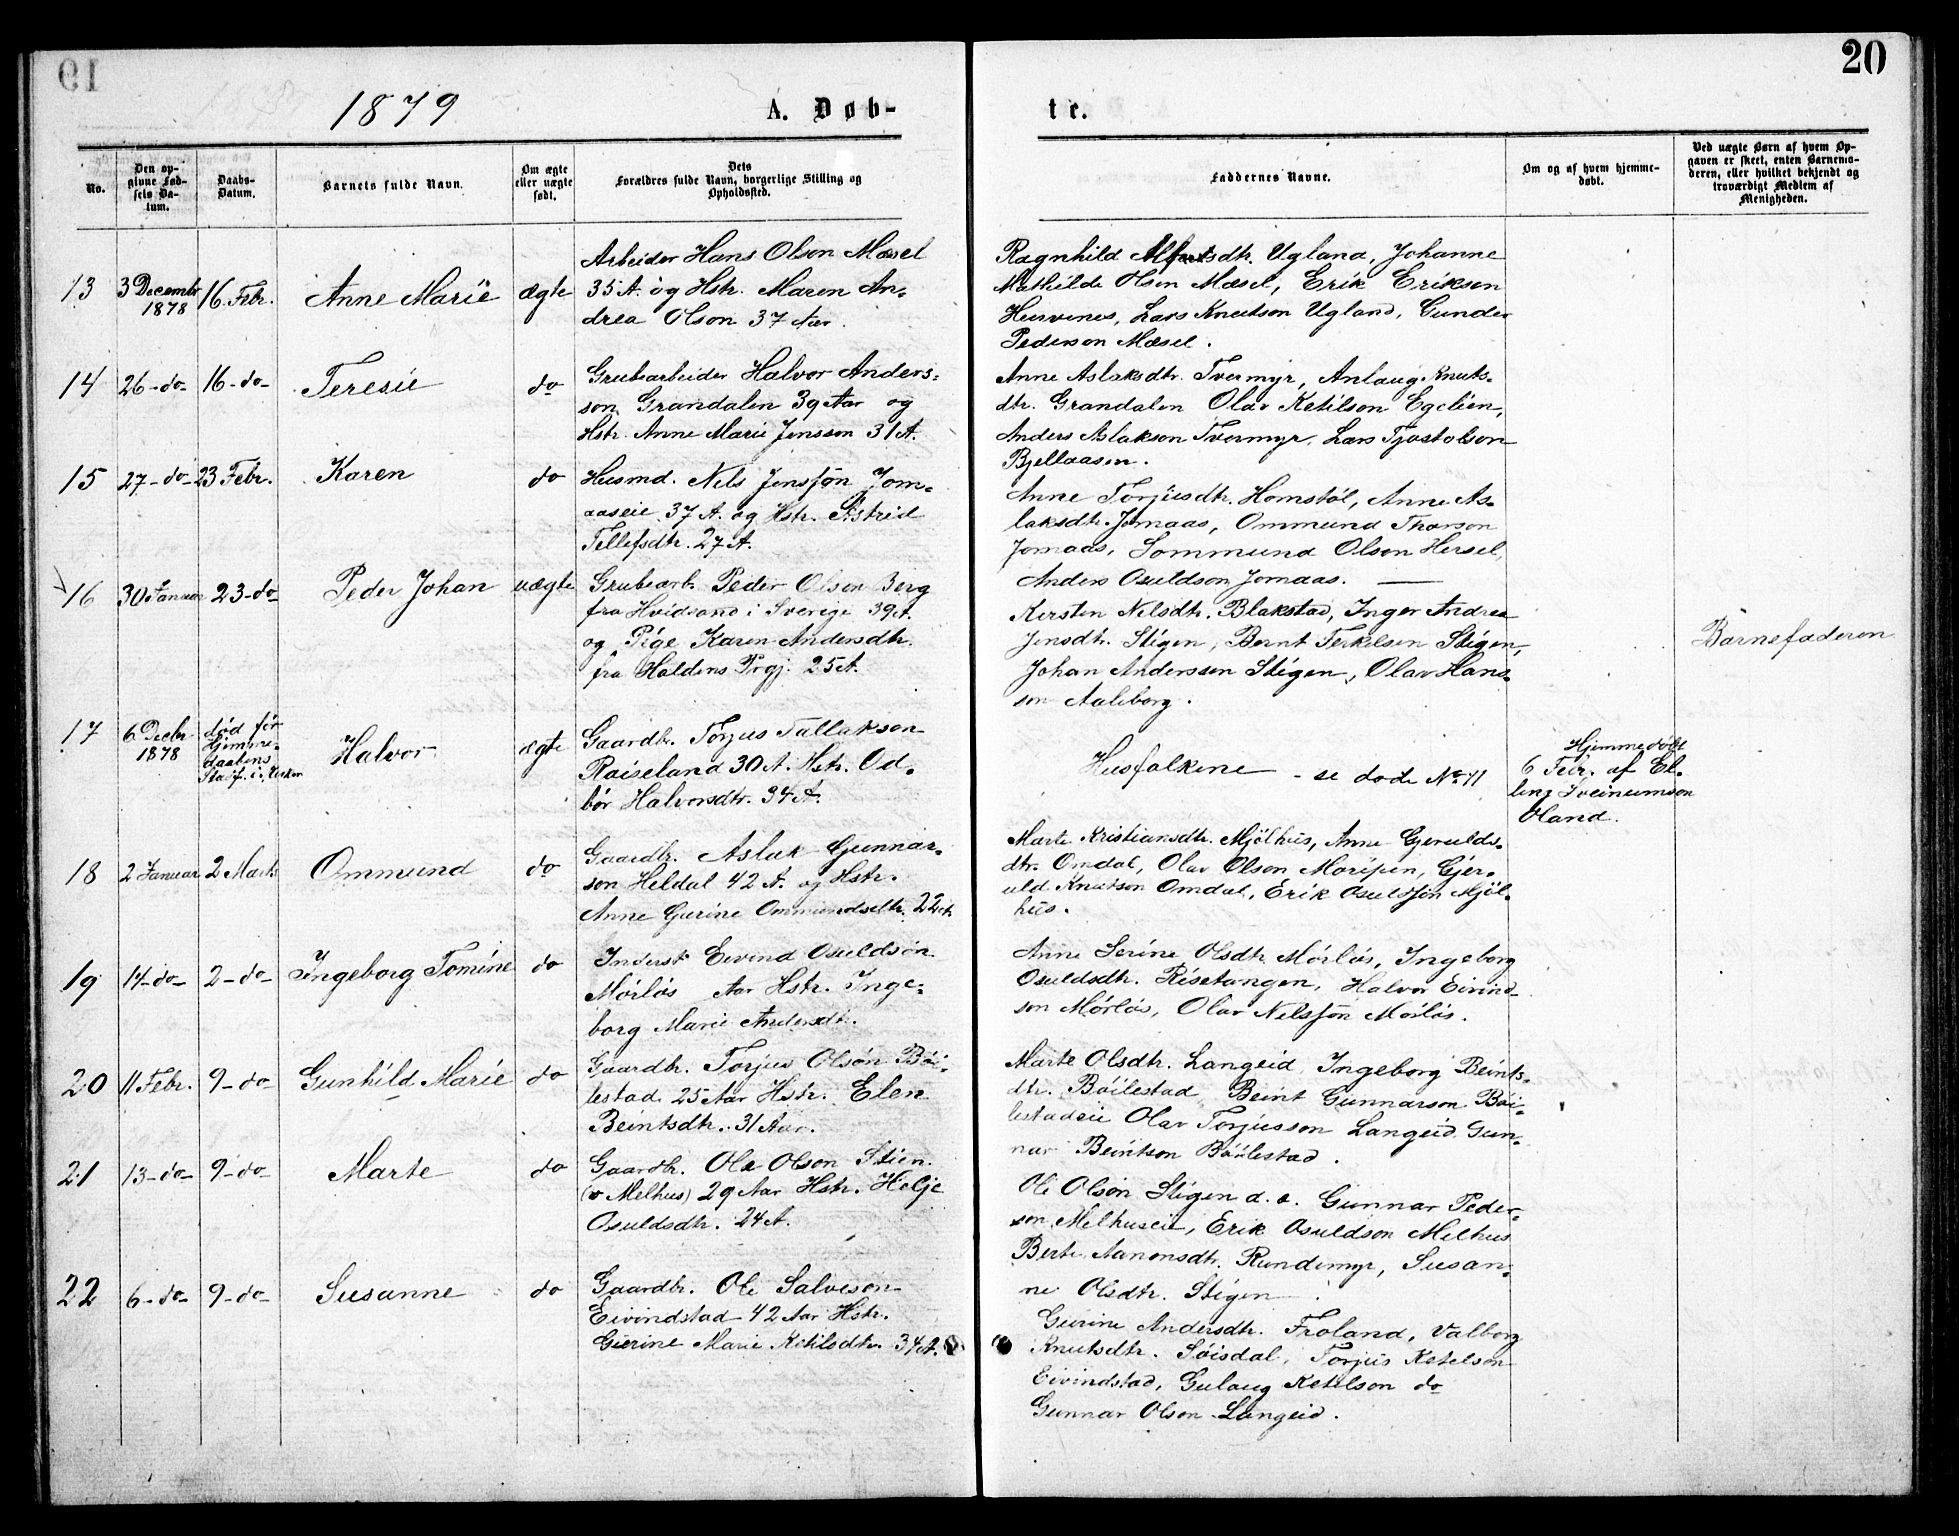 20
1879
A. Døb-
te.
No.
Den op-
givne Fød-
sels Da-
tum.
Daabs-
Datum.
Barnets fulde Navn.
Om ægte
eller uægte
født.
Dets
Forældres fulde Navn, borgerlige Stilling og
Opholdssted.
Faddernes Navne.
Om og af hvem hjemme-
døbt.
Ved uægte Børn af hvem Op-
gaven er skeet, enten Barnemo-
deren, eller hvilket bekjendt og
troværdigt Medlem af
Menigheden.
13 3 Decembr 1878 16 Febr. Anne Marie ægte
Arbeider Hans Olson Mæsel
35 A. og Hstr. Maren An-
drea Olson 37 Aar.
Ragnhild Alfsdtr. Ugland, Johanne
Mathilde Olsen Mæsel, Erik Erikson
Hurvenes, Lars Knutson Ugland, Gunder
Pederson Mæsel.
14 26-do- 16-do- Teresie do
Grubearbeider Halvor Anders-
son Grandalen 39 Aar og
Hstr. Anne Marie Jensson 31 A.
Anne Aslaksdtr. Tvermyr, Anlaug Knuts-
dtr. Grandalen Olav Ketilson Egelien,
Anders Aslakson Tvermyr, Lars Tjostolson
Bjellaasen.
15 27-do- 23 Febr. Karen do
Husmd. Nils Jensson Jom-
aaseie 37 A. og Hstr. Astrid
Tellefsdtr. 27 A.
Anne Torjusdtr. Homstøl, Anne As-
laksdtr. Jomaas, Ommund Thorson
Jomaas, Sommund Olson Hersel,
Anders Osuldson Jomaas.
16 30 Januar 23-do- Peder Johan uægte
Grubearb. Peder Olson Berg
fra Hvidsand i Sverige 39 A.
og Pige Karen Andersdtr.
fra Haldens Prgj. 25 A.
Kersten Nelsdtr. Blakstad, Inger Andrea
Jensdtr. Stigen, Bernt Terkelsen Stigen,
Johan Anderssen Stigen, Olav Hans-
son Aaleborg.
Barnefaderen
17 6 Decbr 1878
død før
Hjemme-
daabens
Stadf. i Kirken
Halvor ægte
Gaardbr. Torjus Tallakson
Raiseland 30 A. Hstr. Od-
bør Halvorsdtr. 34 A.
Husfolkene - se døde No 11
Hjemmedøbt
6 Febr. af El-
ling Sveinumson
Oland.
18 2 Januar 2 Marts Ommund do
Gaardbr. Aslak Gunnar-
son Heldal 42 A. og Hstr.
Anne Gurine Ommundsdtr. 22 A.
Marte Kristiansdtr. Mjølhus, Anne Gjerulds-
dtr. Omdal, Olav Olson Moripen, Gjer-
uld Knutson Omdal, Erik Osuldson Mjøl-
hus.
19 14-do- 2-do- Ingeborg Tomine do
Inderst Eivind Osuldson
Mørløs Aar Hstr. Inge-
borg Marie Andersdtr.
Anne Serine Olsdtr Mørløs, Ingeborg
Osuldsdtr. Risetangen, Halvor Eivind-
son Mørløs, Olav Nelsson Mørløs.
20 11 Febr. 9-do Gunhild Marie do
Gaardbr. Torjus Olson Bøi-
lestad 25 Aar Hstr. Elen
Beintsdtr. 31 Aar.
Marte Olsdtr. Langeid, Ingeborg Beints-
dtr. Bøilestad Beint Gunnarson Bøi-
lestadeie Olav Torjusson Langeid Gun-
nar Beintson Bøilestad.
21 13-do- 9-do- Marte do
Gaardbr. Ole Olson Stien
(v Melhus) 29 Aar Hstr. Helje
Osuldsdtr. 24 A.
Ole Olson Stigen d. e. Gunnar Peder-
son Melhuseie, Erik Osuldson Melhus
Berte Aanonsdtr. Rundemyr, Susan-
ne Olsdtr. Stigen.
22 6-do- 9-do- Susanne do
Gaardbr. Ole Salveson
Eivindstad 42 Aar Hstr.
Gurine Marie Ketilsdtr. 34 A.
Gurine Andersdtr. Froland, Valborg
Knutsdtr. Søisdal, Torjus Ketelson
Eivindstad, Gulaug Ketilson do
Gunnar Olson Langeid.